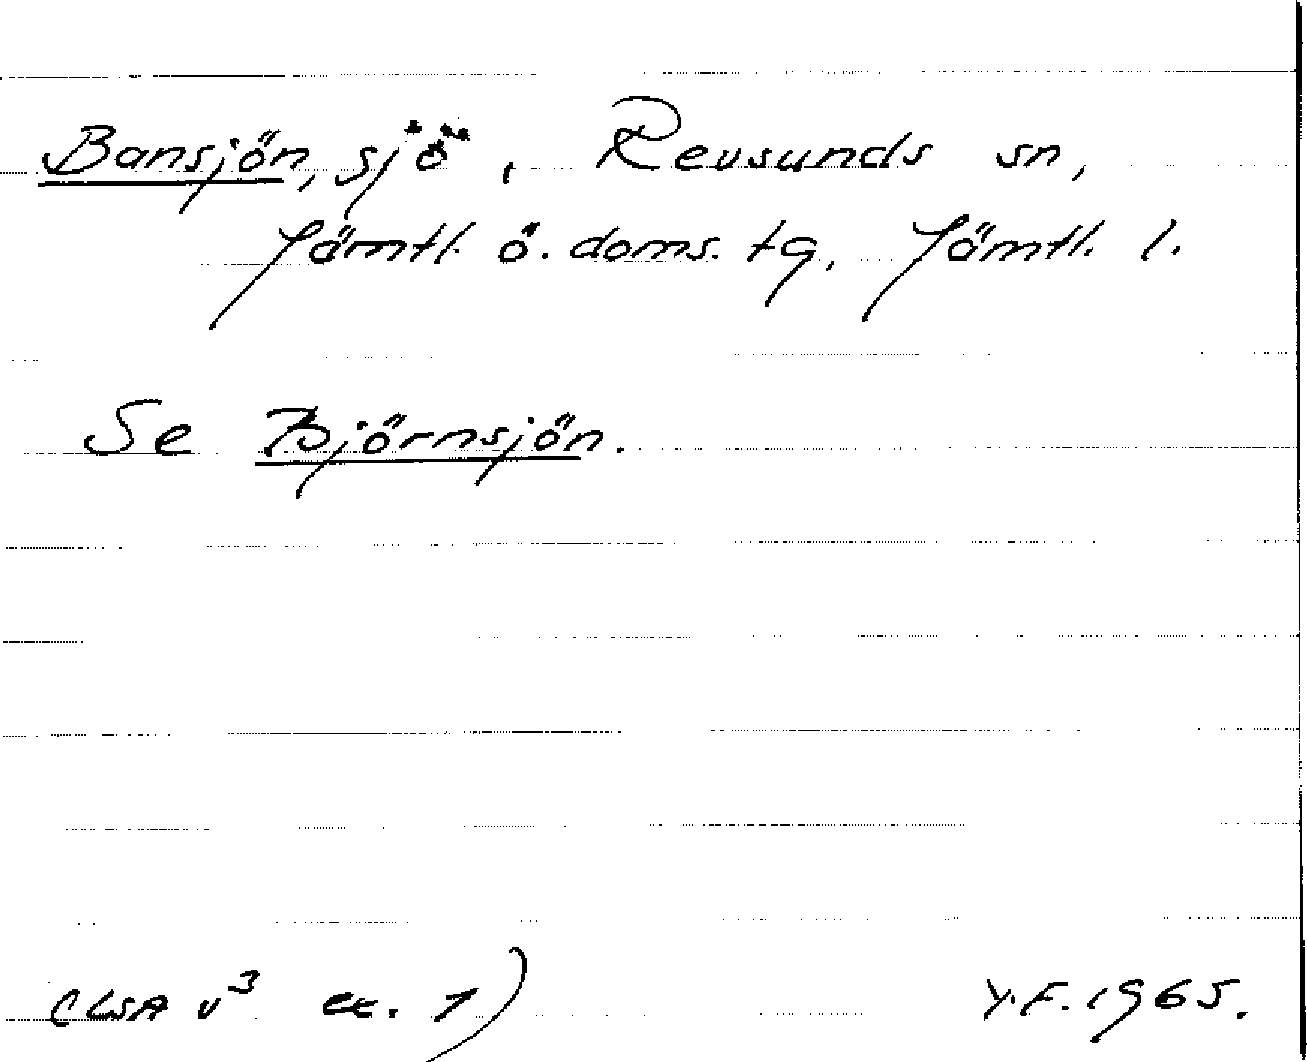 Bansjön, sjö, Revsunds sn,
Jämtl. ö. doms. tg, Jämtl. l.
Se Björnsjön.
(LSA v³ ex. 1) Y.F. 1965.